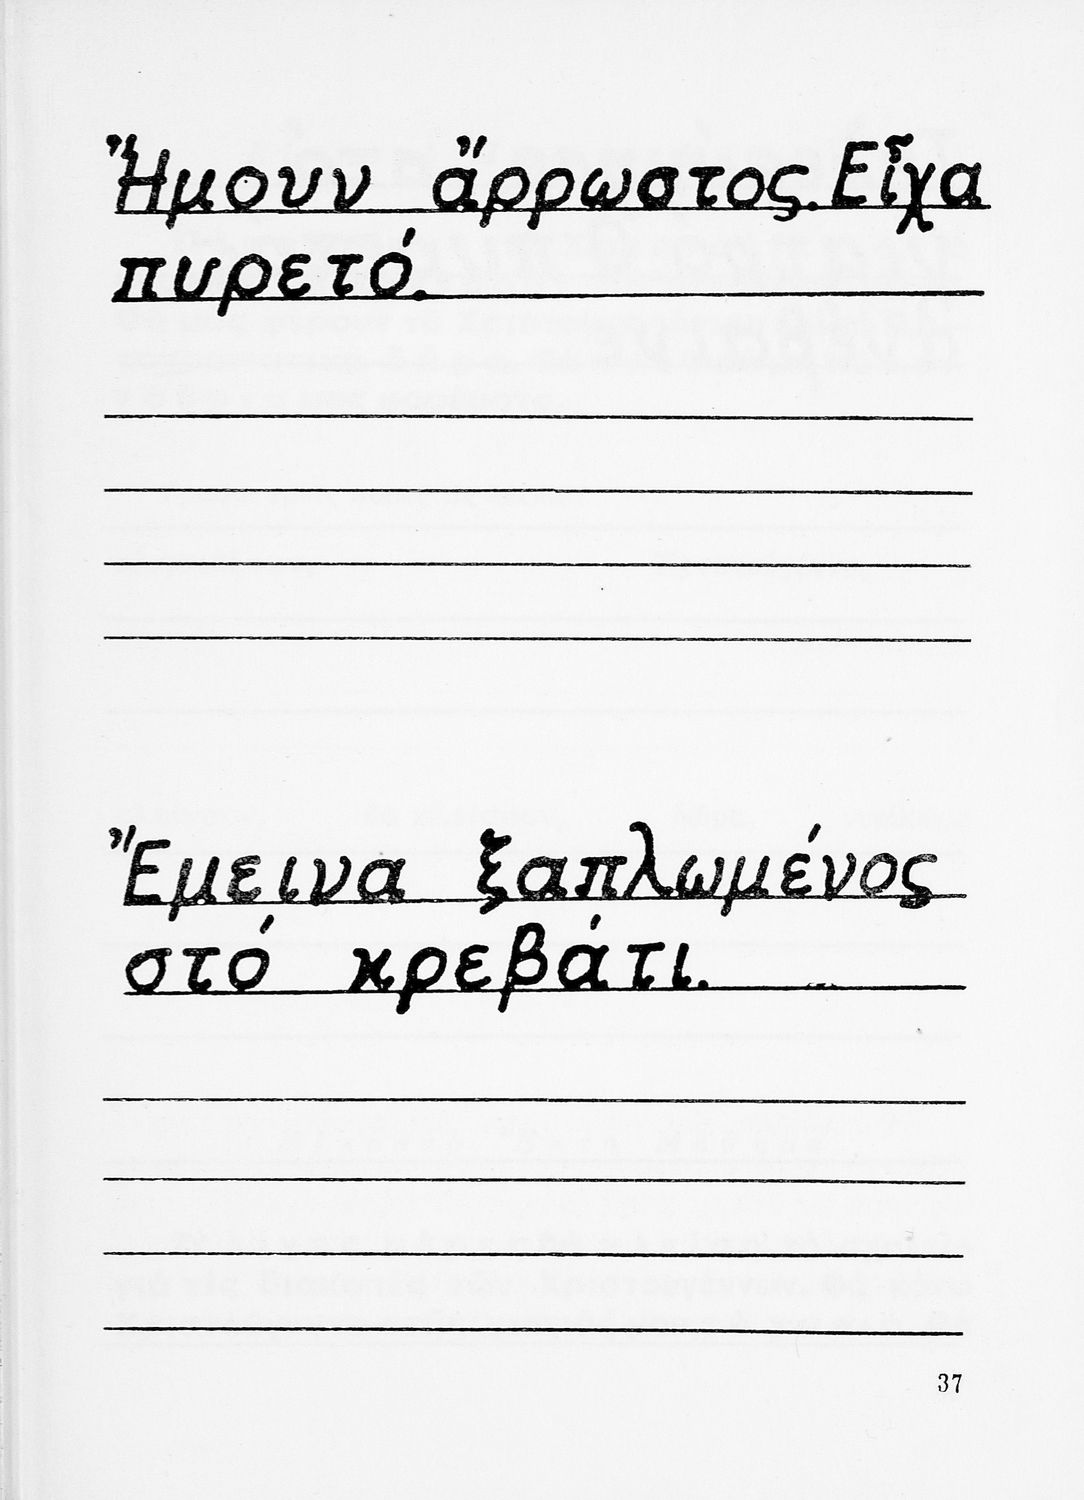 Ἤμουν ἄρρωστος. Εἶχα
πυρετό.
Ἔμεινα ξαπλωμένος
στό κρεβάτι.
37